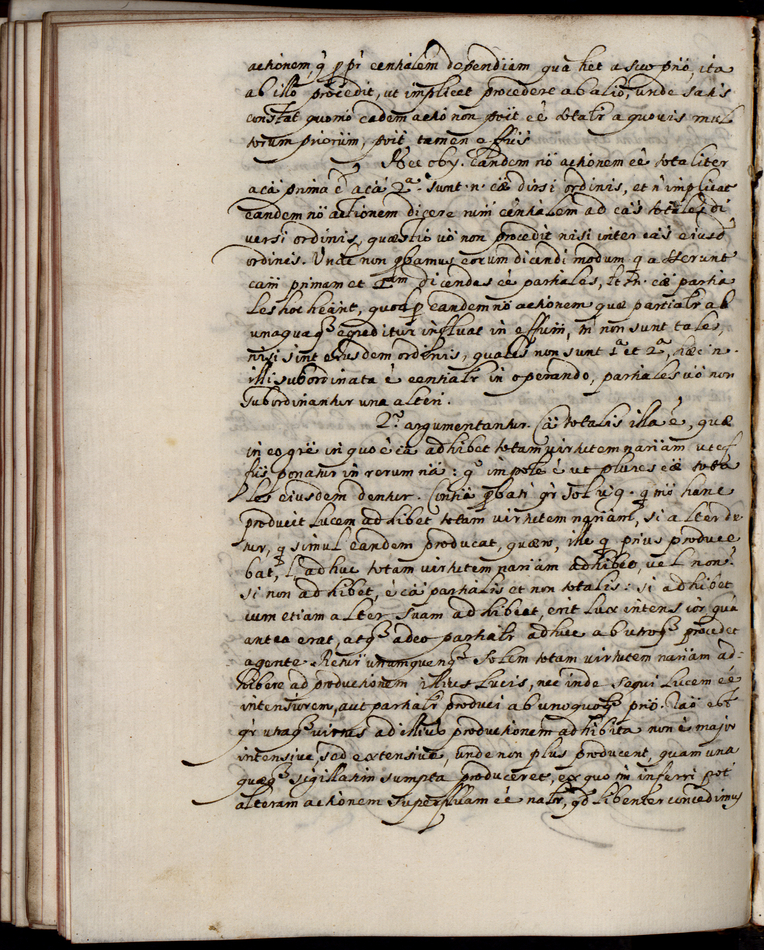 actionem, q̃ p pr̃ centialem dependiam qua het a suo prõ, ita
ab illo procedit, ut implicet procedere ab alio, unde satis
constat quomõ eadem actio non põit eẽ totalr a quovis mul
torum priorum, põit tamen effũs
Nec obý. eandem nõ actionem eẽ totaliter
a cã prima ẽ a cã 2ª. sunt .n. cæ divsi ordinis, et ñ implicat
eandem nõ actionem dicere centialem ad cãs totales di
versi ordinis, quæstio võ non procedit nisi inter cãs eiusd
ordinis. Unde non pbamus eorum dicendi modum q asserunt
cam primam et 2am dicendas eẽ partiales, cæ partia
les hoc heant, quod eandem nõ actionem quæ partialr ab
unaquaq egreditur influat in effum, non sunt tales
nisi sint eiusdem ordinis, quales non sunt 1ª et 2ª, hæc .n.
illi subordinata ẽ centialr in operando, partiales võ non
subordinantur una alteri.
2º. argumentantur. Cã totalis illa ẽ, quæ
in eo gñe in quo ẽ cã adhibet totam virtutem nariam ut ef
fũs ponatur in rerum nã: g impole ẽ ut plures cæ tota
les eiusdem dentur. Contiã pbatr gr sol v.g. q nõ hanc
producit lucem adhibet totam virtutem nariam, si alter de
tur, q simul eandem producat, quæro, ille q prius produce
bat, adhuc totam virtutem nariam adhibet, vel non?
si non adhibet, ẽ cã partialis et non totalis: si adhibet
cum etiam alter suam adhibeat, erit lux intensior quã
antea erat, atq adeo partialr adhuc ab utroq procedet
agente. Retur unumquenq solem totam virtutem nariam ad-
hibere ad productionem illius lucis, nec inde sequi lucem eẽ
intensiorem, aut partialr produci ab unoquoq prõ. Raõ est
gr utraq virtus ad illius productionem adhibita non ẽ major
intensive, sed extensive, unde non plus producent, quam una
quæq sigillatim sumpta produceret, ex quo inferri pot
alteram actionem superfluam eẽ natr, qd libenter concedimus